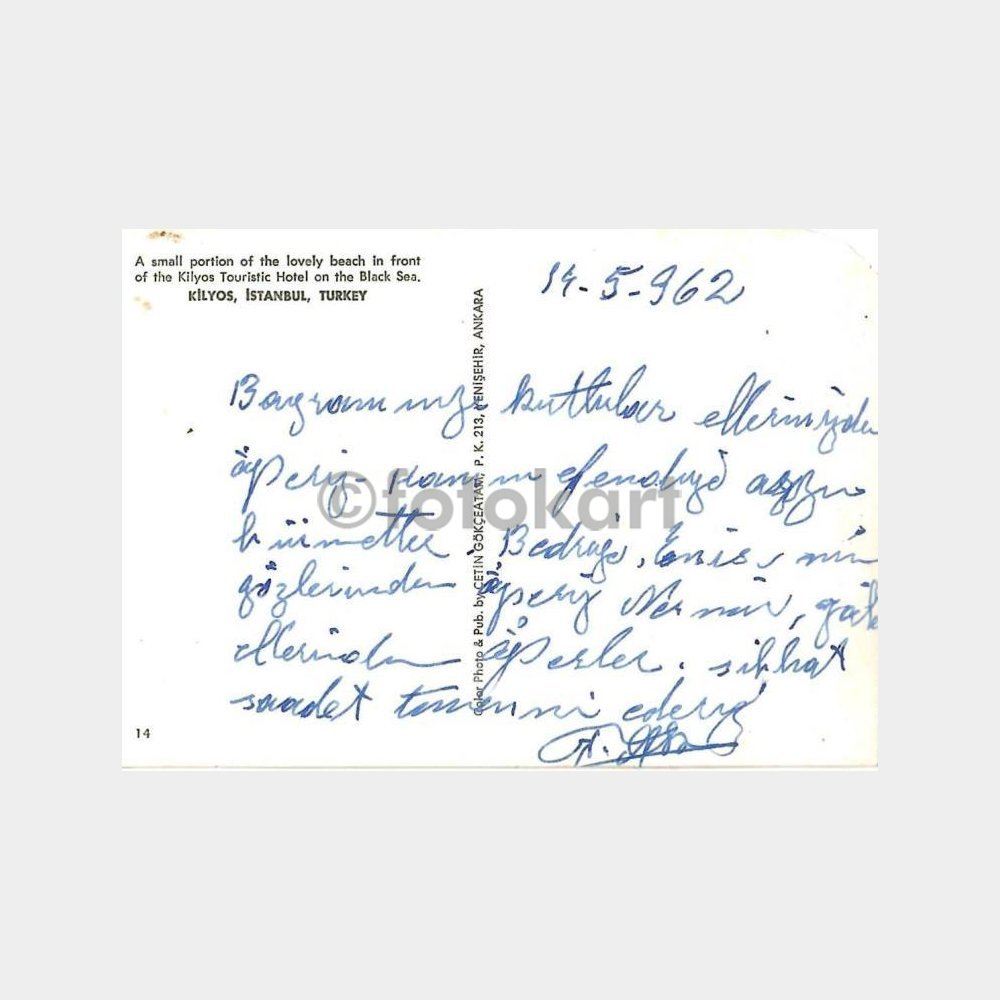 A small portion of the lovely beach in front
of the Kilyos Touristic Hotel on the Black Sea.
KİLYOS, İSTANBUL, TURKEY
14-5-962
Bayramınızı kutlular ellerinizden
öperiz. Hanım efendiye
hürmetler. Bedriye, Enis,
gözlerinden öperiz
ellerinden öperler. sıhhat
saadet temenni ederiz
Color Photo & Pub. by ÇETİN GÖKÇEATAM, P. K. 213, YENİŞEHİR, ANKARA
14
©fotokart